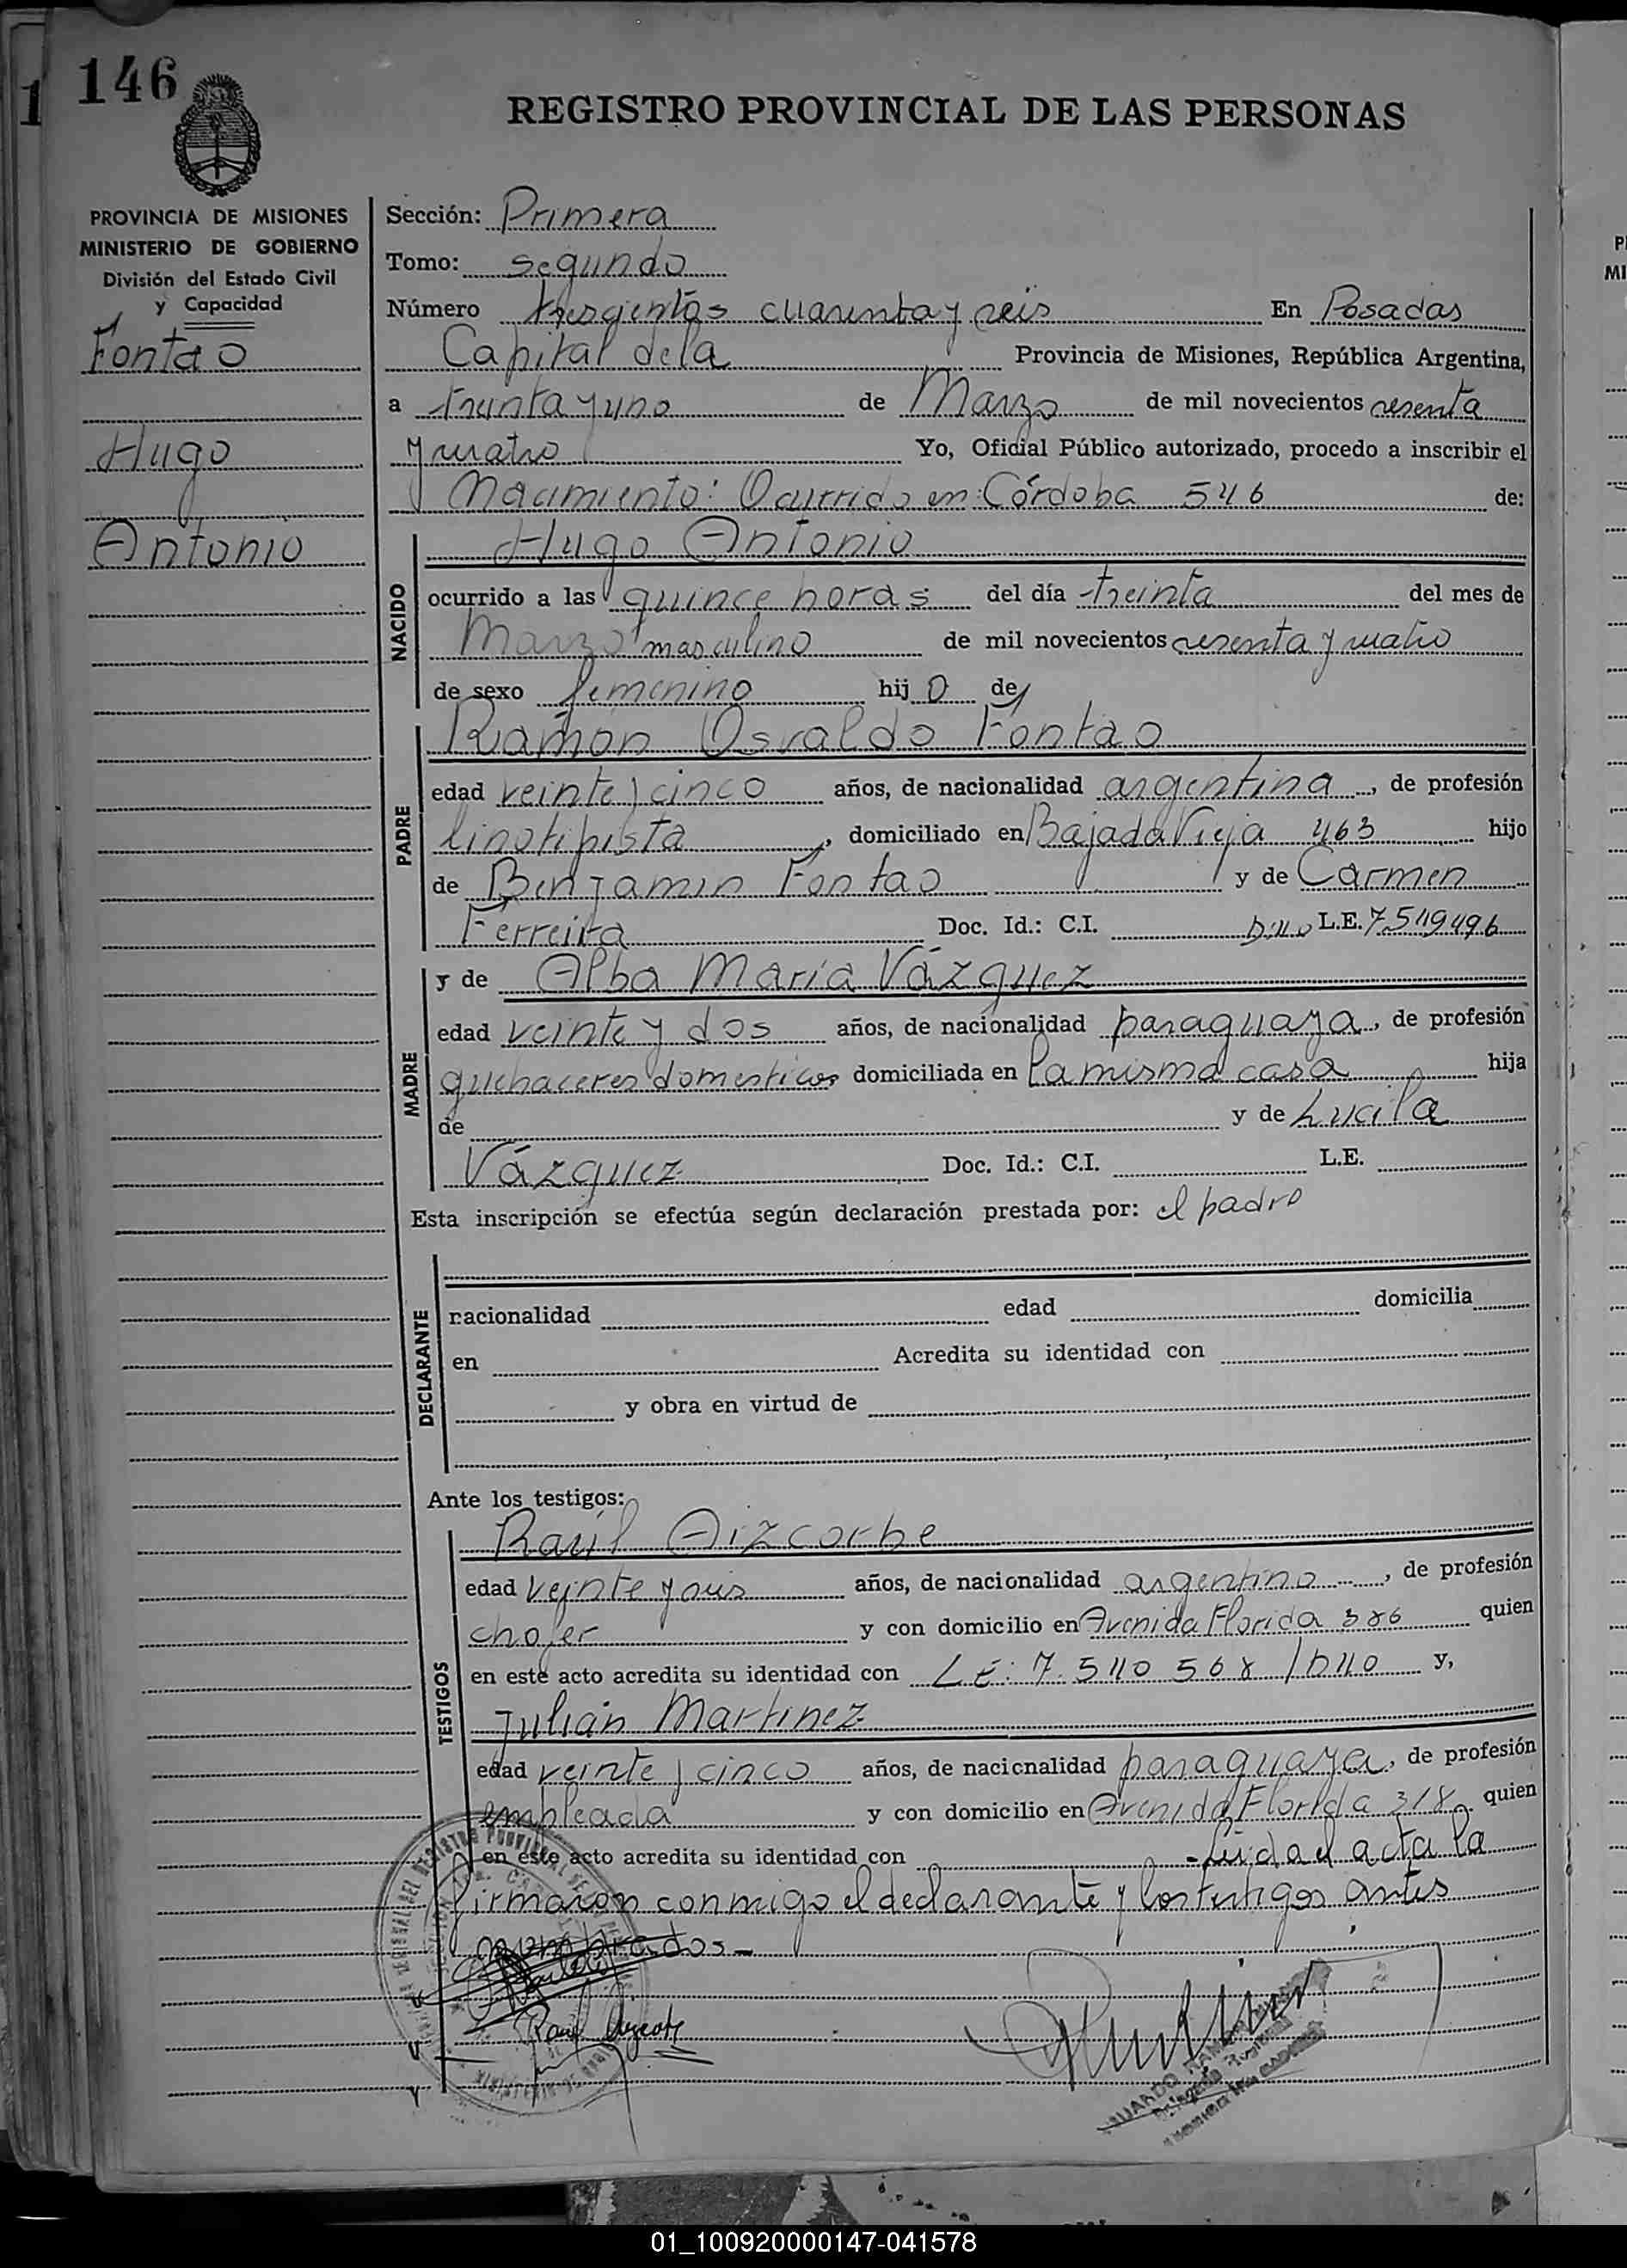 146
REGISTRO PROVINCIAL DE LAS PERSONAS
PROVINCIA DE MISIONES
MINISTERIO DE GOBIERNO
División del Estado Civil
y Capacidad
Fontao
Hugo
Antonio
Sección: Primera
Tomo: segundo
Número trescientos cuarenta y seis En Posadas
Capital de la Provincia de Misiones, República Argentina,
a treinta y uno de Marzo de mil novecientos sesenta
y cuatro Yo, Oficial Público autorizado, procedo a inscribir el
Nacimiento: Ocurrido en: Córdoba 546 de:
NACIDO
Hugo Antonio
ocurrido a las quince horas del día treinta del mes de
Marzo masculino de mil novecientos sesenta y cuatro
de sexo femenino hij o de
PADRE
Ramón Osvaldo Fontao
edad veinte y cinco años, de nacionalidad argentina, de profesión
linotipista, domiciliado en Bajada Vieja 463 hijo
de Benjamin Fontao y de Carmen
Ferreira Doc. Id.: C.I. L.E. 7549496
MADRE
y de Alba María Vázquez
edad veinte y dos años, de nacionalidad paraguaya, de profesión
quehaceres domesticos domiciliada en la misma casa hija
de y de Lucila
Vázquez Doc. Id.: C.I. L.E.
Esta inscripción se efectúa según declaración prestada por: el padre
DECLARANTE
nacionalidad edad domicilia
en Acredita su identidad con
y obra en virtud de
Ante los testigos:
TESTIGOS
Raúl Aizcorbe
edad veinte y seis años, de nacionalidad argentino, de profesión
chofer y con domicilio en Avenida Florida 386 quien
en este acto acredita su identidad con LE: 7.540.568 y,
Julián Martinez
edad veinte y cinco años, de nacionalidad paraguaya, de profesión
empleada y con domicilio en Avenida Florida 318 quien
en este acto acredita su identidad con - Leida el acta la
firmaron conmigo el declarante y los testigos antes
nombrados -
01_100920000147-041578